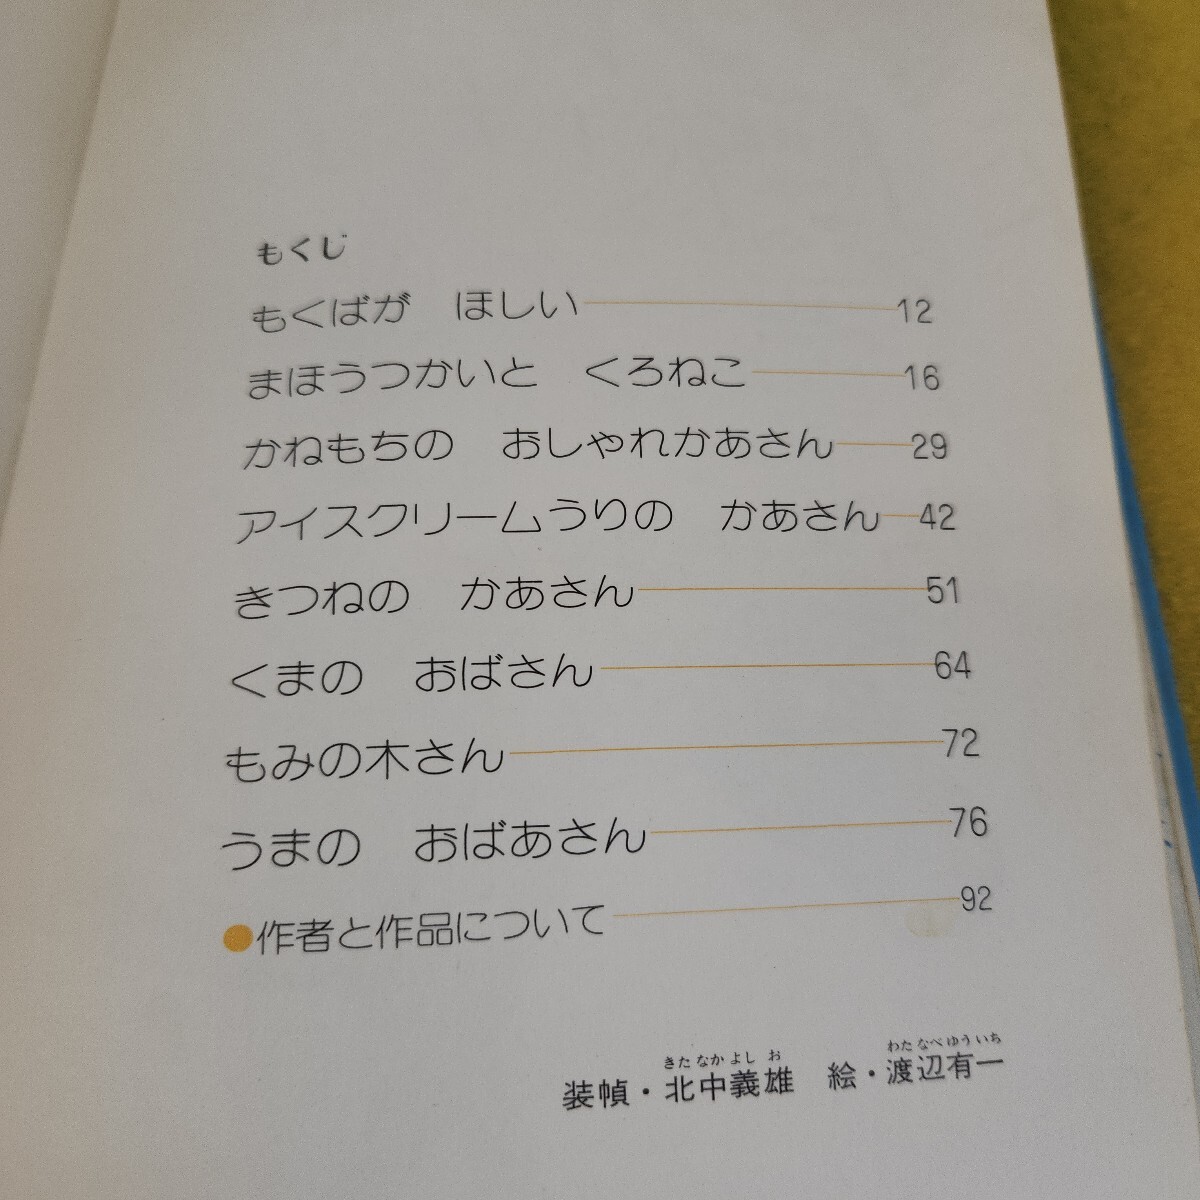 もくじ
もくばが　ほしい　12
まほうつかいと　くろねこ　16
かねもちの　おしゃれかあさん　29
アイスクリームうりの　かあさん　42
きつねの　かあさん　51
くまの　おばさん　64
もみの木さん　72
うまの　おばあさん　76
●作者と作品について　92
きたなかよしお　わたなべゆういち
装幀・北中義雄　絵・渡辺有一